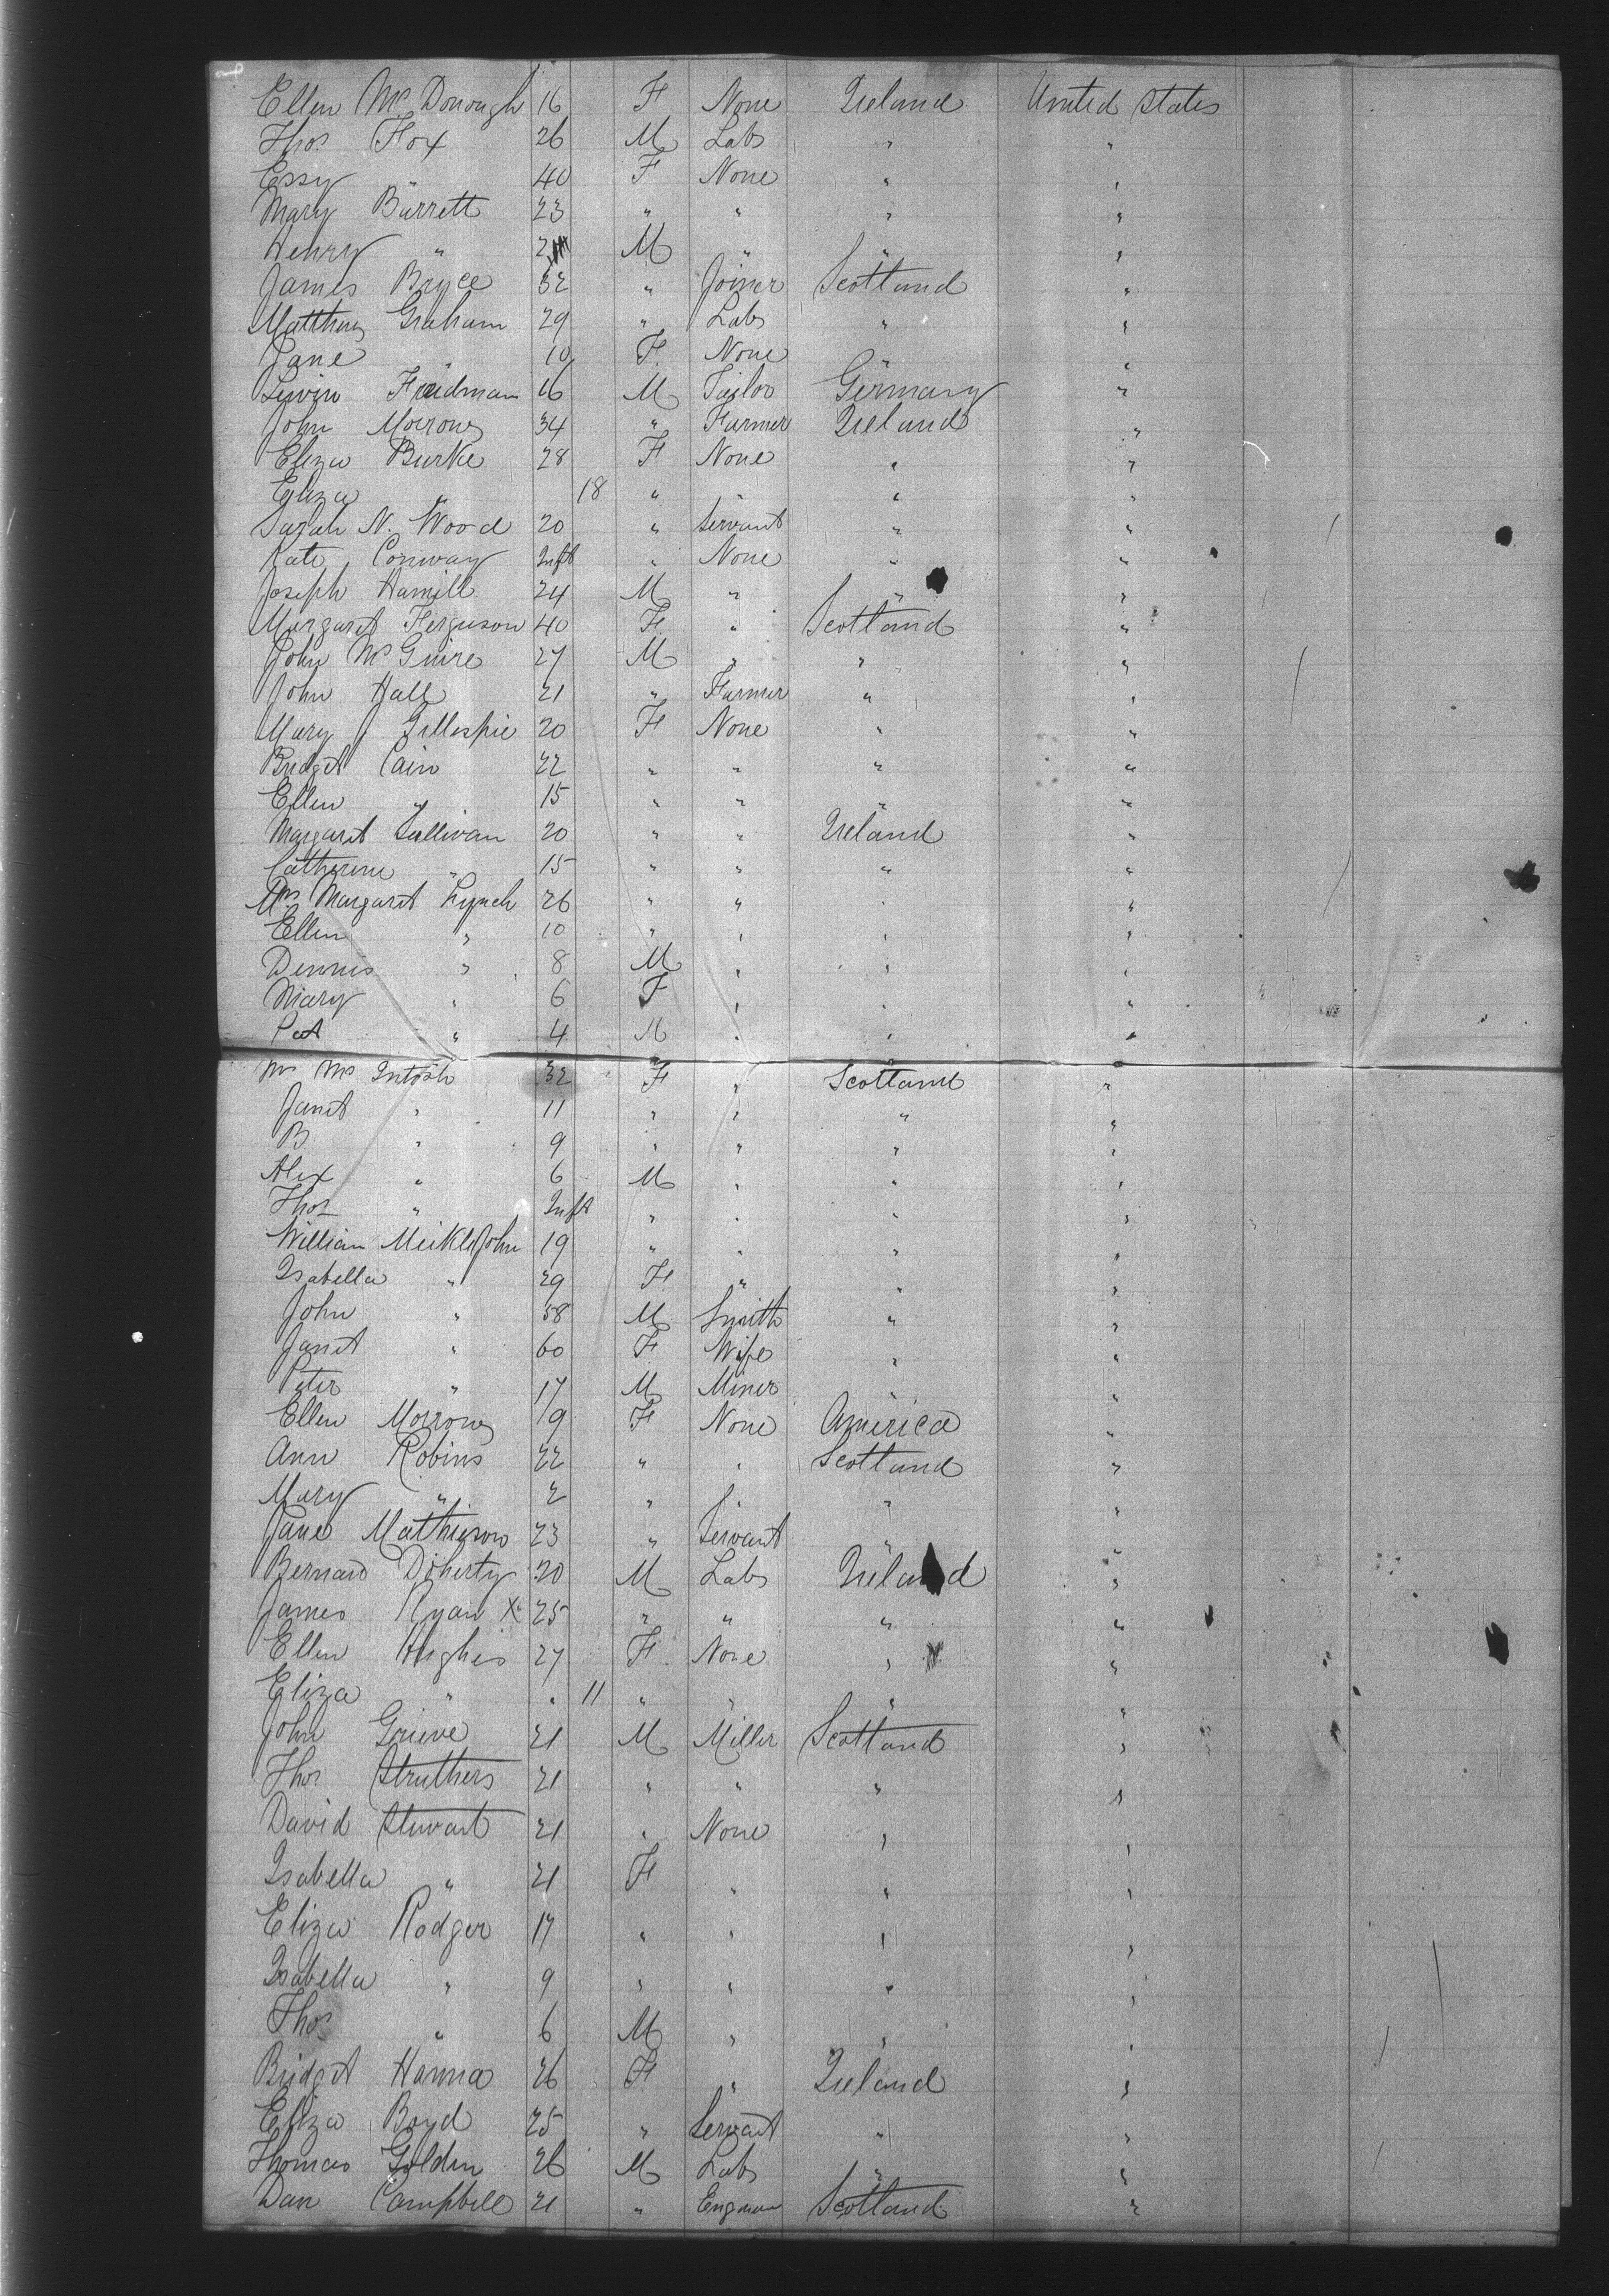 Ellen McDonough 16 F None Ireland United States
Thos Fox 26 M Labr " "
Essy " 40 F None " "
Mary Barrett 23 " " " "
Henry " M " " "
James Bryce 32 " Joiner Scotland "
Matthew Graham 29 " Labr " "
Jane " 10 F None " "
Lewin Friedman 16 M Tailor Germany "
John Morrow 34 " Farmer Ireland "
Eliza Burke 28 F None " "
Eliza " 18 " " " "
Sarah N. Wood 20 " Servant " "
Kate Conway Inft " None " "
Joseph Hamill 24 M " " "
Margaret Ferguson 40 F " Scotland "
John McGuire 27 M " " "
John Hall 21 " Farmer " "
Mary J Gillespie 20 F None " "
Bridget Cain 22 " " " "
Ellen " 15 " " " "
Margaret Sullivan 20 " " Ireland "
Catherine " 15 " " " "
Mrs Margaret Lynch 26 " " " "
Ellen " 10 " " " "
Dennis " 8 M " " "
Mary " 6 F " " "
Pat " 4 M " " "
Mrs McIntosh 32 F " Scotland "
Janet " 11 " " " "
B " 9 " " " "
Alex " 6 M " " "
Thos " Inft " " " "
William MeikleJohn 19 " " " "
Isabella " 29 F " " "
John " 58 M Smith " "
Janet " 60 F Wife " "
Peter " 17 M Miner " "
Ellen Morrow 19 F None America "
Ann Robins 22 " " Scotland "
Mary " 2 " " " "
Jane Mathieson 23 " Servant " "
Bernard Doherty 20 M Labr Ireland "
James Ryan X 25 " " " "
Ellen Hughes 27 F None " "
Eliza " " 11 " " " "
John Grieve 21 M Miller Scotland "
Thos Struthers 21 " " " "
David Stewart 21 " None " "
Isabella " 21 F " " "
Eliza Rodger 17 " " " "
Isabella " 9 " " " "
Thos " 6 M " " "
Bridget Hanna 26 F " Ireland "
Eliza Boyd 25 " Servant " "
Thomas Golden 26 M Labr " "
Dan Campbell 21 " Engman Scotland "